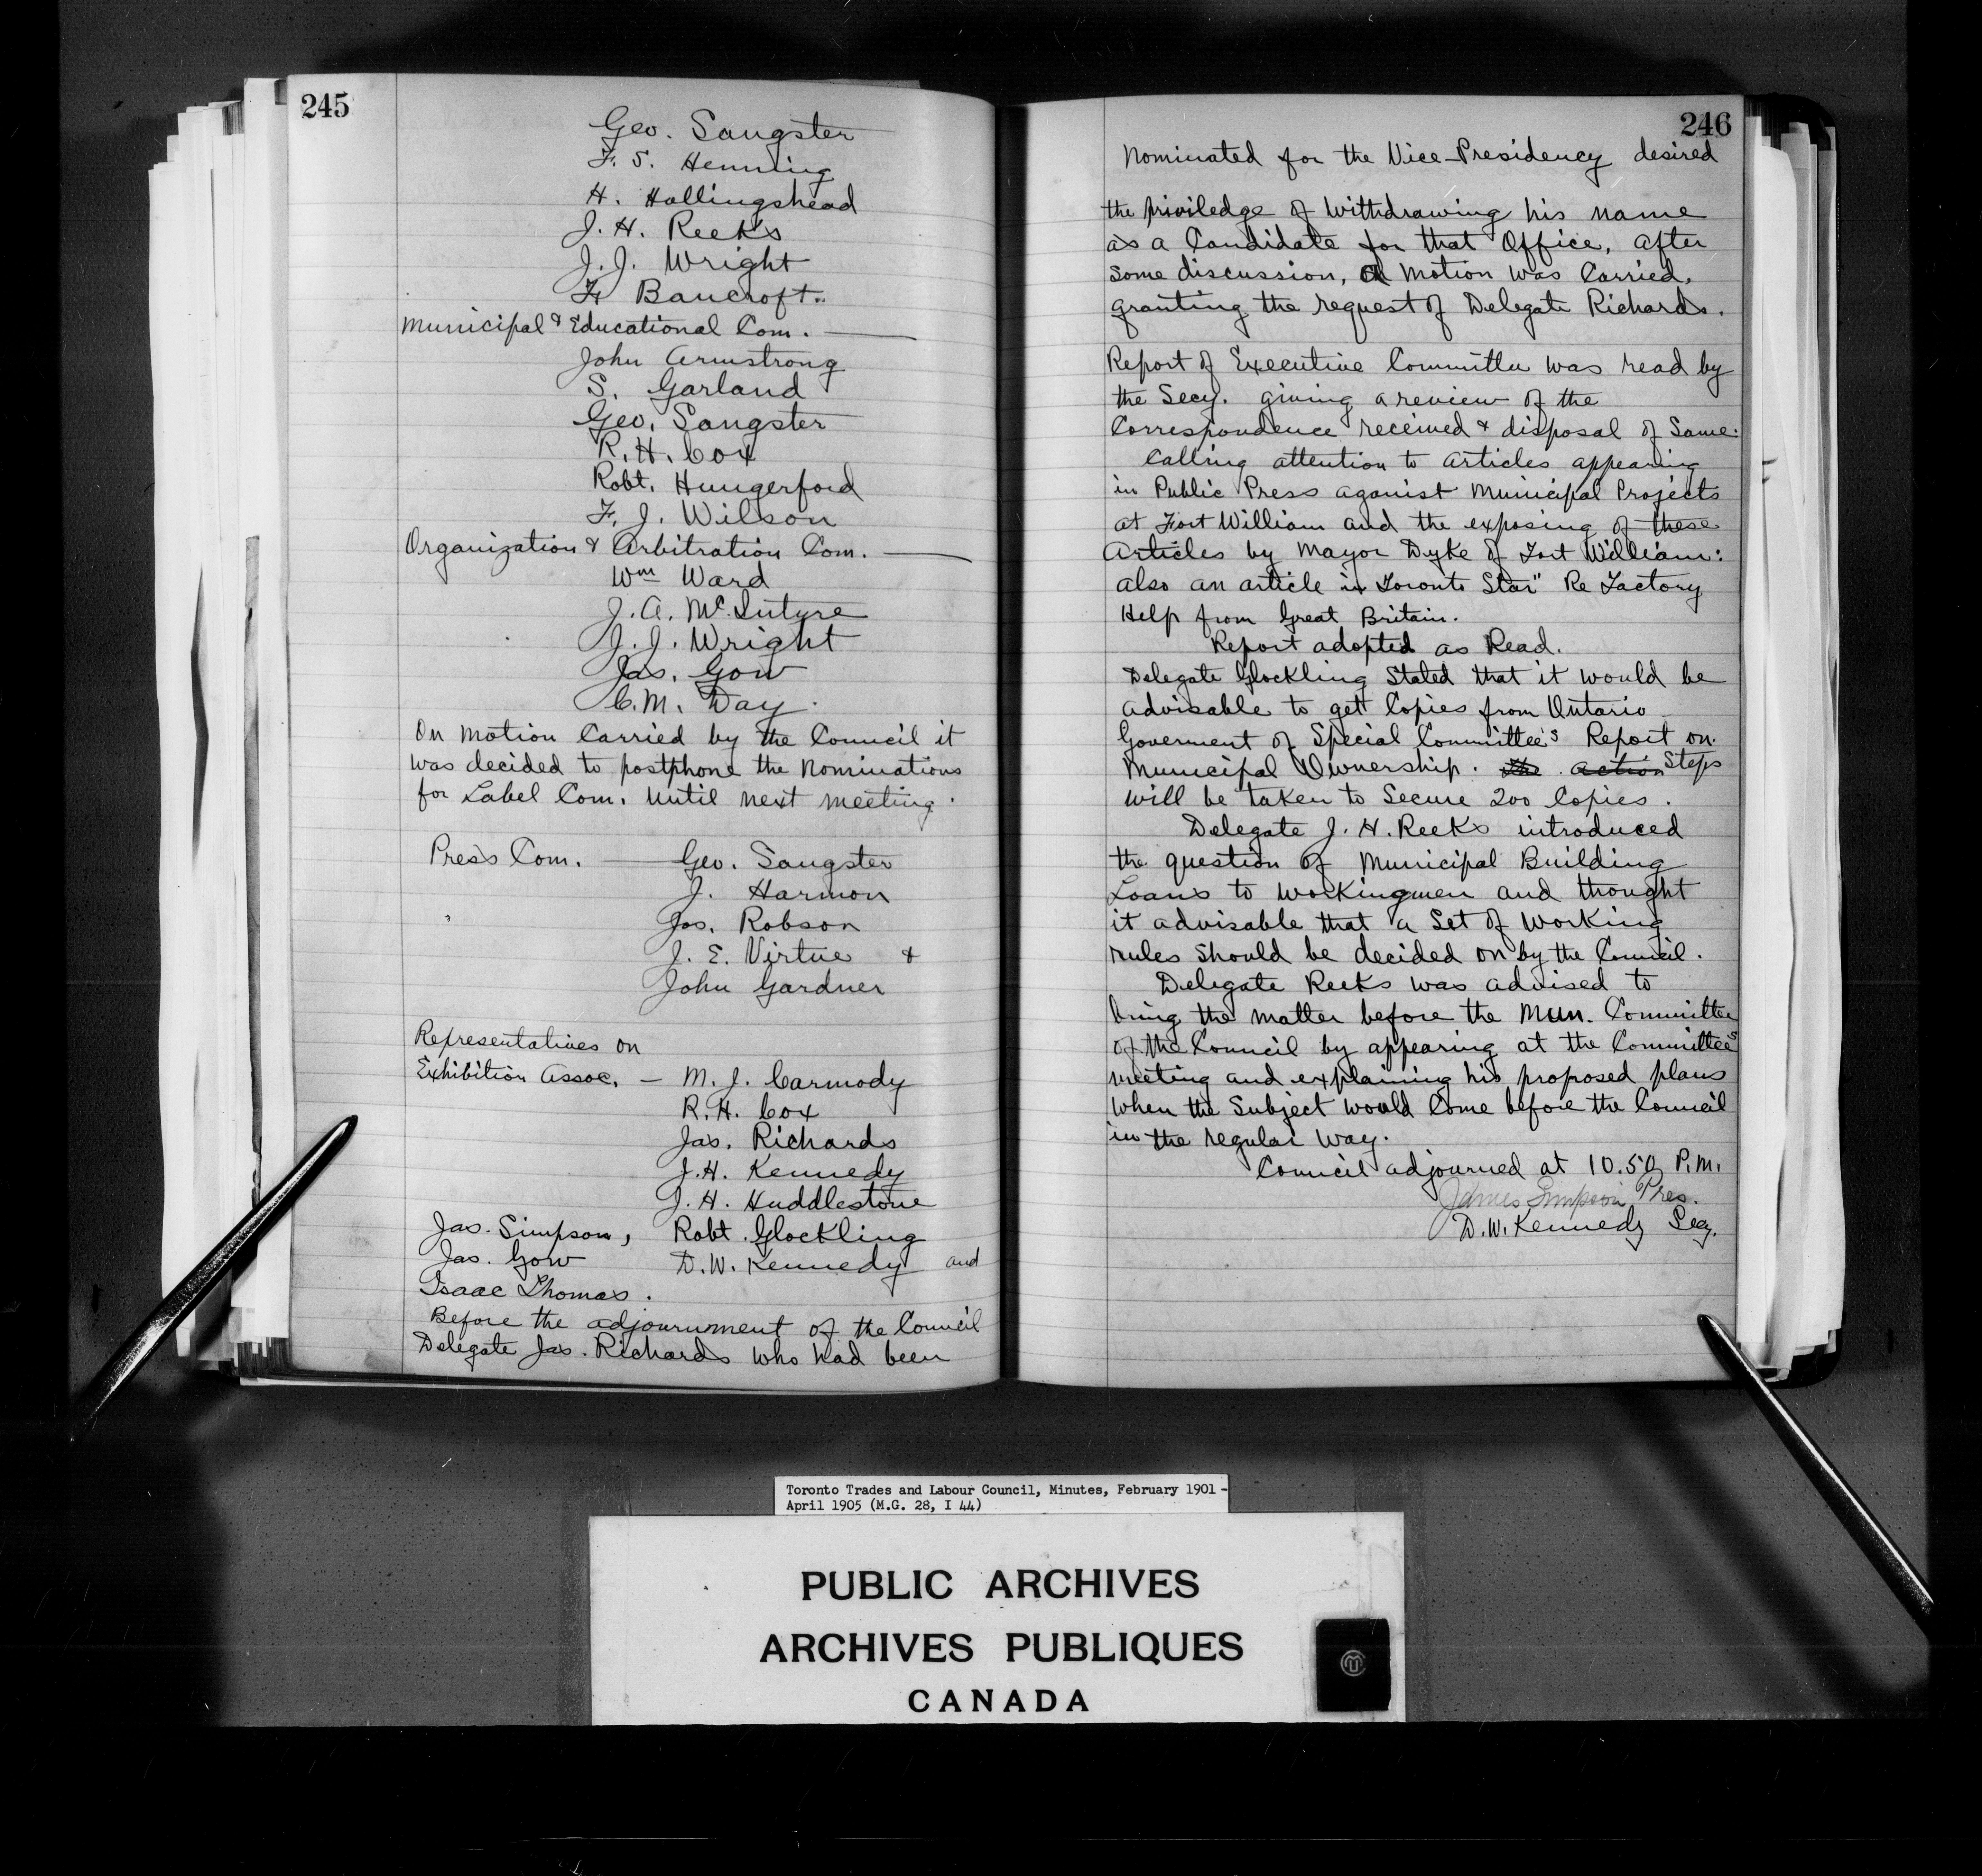 245
Geo. Sangster
F. S. Henning
H. Hollingshead
J. H. Reeks
J. J. Wright
F. Bancroft.
Municipal & Educational Com. —
John Armstrong
S. Garland
Geo. Sangster
R. H. Cox
Robt. Hungerford
F. J. Wilson
Organization & Arbitration Com. —
Wm Ward
J. A. McIntyre
J. J. Wright
Jas. Gow
C. M. Day.
On motion Carried by the Council it
was decided to postphone the Nominations
for Label Com. Until next meeting.
Press Com. — Geo. Sangster
J. Harmon
Jos. Robson
J. E. Virtue &
John Gardner
Representatives on
Exhibition Assoc. — M. J. Carmody
R. H. Cox
Jas. Richards
J. H. Kennedy
J. H. Huddlestone
Jas. Simpson, Robt. Glockling
Jas. Gow D. W. Kennedy and
Isaac Thomas.
Before the adjournment of the Council
Delegate Jas. Richards who had been
246
Nominated for the Vice-Presidency desired
the priviledge of Withdrawing his name
as a Candidate for that Office, after
some discussion, a motion was Carried,
granting the request of Delegate Richards.
Report of Executive Committee was read by
the Secy. giving a review of the
Correspondence received & disposal of Same:
Calling attention to articles appearing
in Public Press aganist Municipal Projects
at Fort William and the exposing of these
Articles by Mayor Dyke of Fort William:
also an article in Toronto Star" Re Factory
Help from Great Britain.
Report adopted as Read.
Delegate Glockling Stated that it would be
advisable to get Copies from Ontario
Goverment of Special Committee's Report on
Municipal Ownership. the action Steps
will be taken to Secure 200 Copies.
Delegate J. H. Reeks introduced
the question of Municipal Building
Loans to Workingmen and thought
it advisable that a Set of Working
rules Should be decided on by the Council.
Delegate Reeks was advised to
bring the matter before the Mun. Committee
of the Council by appearing at the Committee's
meeting and explaining his proposed plans
When the Subject would Come before the Council
in the regular way.
Council adjourned at 10.50 P.M.
James Simpson Pres.
D. W. Kennedy Secy.
Toronto Trades and Labour Council, Minutes, February 1901 -
April 1905 (M.G. 28, I 44)
PUBLIC ARCHIVES
ARCHIVES PUBLIQUES
CANADA